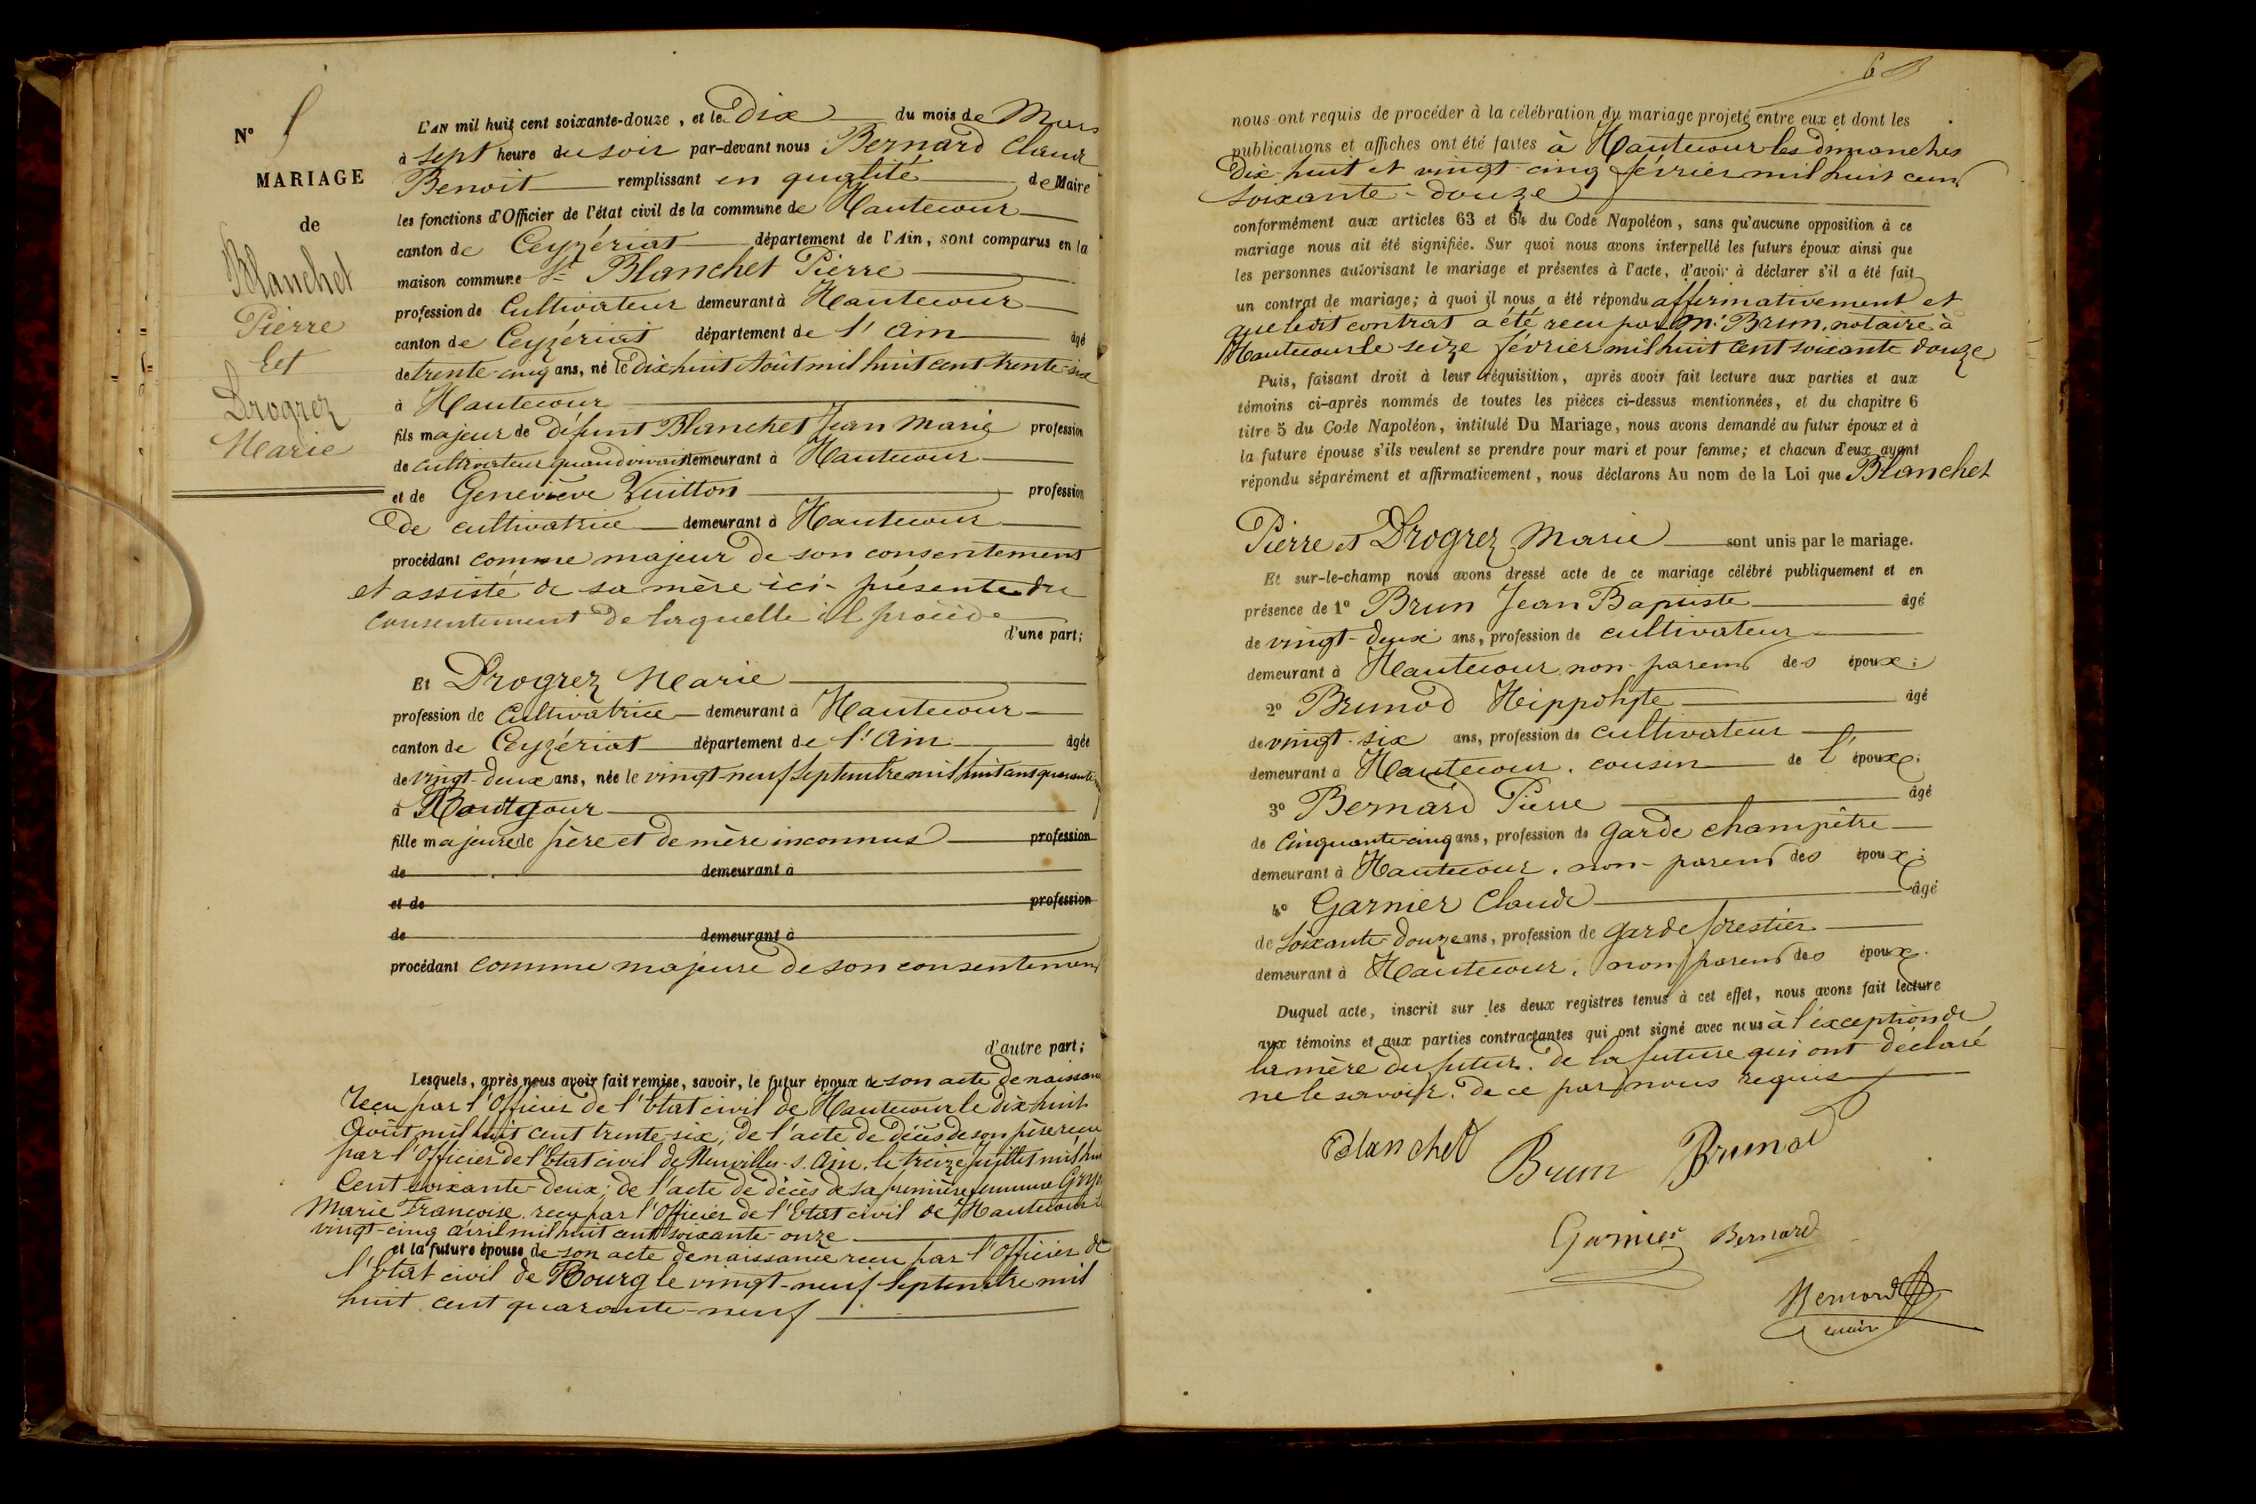 N° 5
MARIAGE
de
Blanchet
Pierre
Et
Drogrez
Marie
L'AN mil huit cent soixante-douze, et le Dix du mois de Mars
à sept heure du soir par-devant nous Bernard Claude
Benoit remplissant en qualité de Maire
les fonctions d'Officier de l'état civil de la commune de Hautecour
canton de Ceyzériat département de l'Ain, sont comparus en la
maison commune Sr Blanchet Pierre
profession de Cultivateur demeurant à Hautecour
canton de Ceyzériat département de l'Ain âgé
de trente-cinq ans, né le dix huit Août mil huit cent trente-six
à Hautecour
fils majeur de défunt Blanchet Jean Marie profession
de cultivateur quand vivait demeurant à Hautecour
et de Geneviève Vuitton profession
De cultivatrice demeurant à Hautecour
procédant comme majeur de son consentement
et assisté de sa mère ici présente du
consentement de laquelle il procède
d'une part;
Et Drogrez Marie
profession de Cultivatrice demeurant à Hautecour
canton de Ceyzériat département de l'Ain âgée
de vingt-deux ans, née le vingt-neuf Septembre mil huit cent quarante
à
fille majeure de père et de mère inconnus profession
de demeurant à
et de profession
de demeurant à
procédant comme majeure de son consentement
d'autre part;
Lesquels, après nous avoir fait remise, savoir, le futur époux de son acte de naissance
reçu par l'Officier de l'Etat civil de Hautecour le dix huit
Août mil huit cent trente-six; de l'acte de décès de son père reçu
par l'Officier de l'Etat civil de Neuville s. Ain, le treize juillet mil huit
Cent soixante-deux; de l'acte de décès de sa première femme
Marie Françoise reçu par l'Officier de l'Etat civil de Hautecour le
vingt-cinq avril mil huit cent soixante-onze
et la future épouse de son acte de naissance reçu par l'Officier de
l'Etat civil de Bourg le vingt-neuf Septembre mil
huit cent quarante-neuf
6
nous ont requis de procéder à la célébration du mariage projeté entre eux et dont les
publications et affiches ont été faites à Hautecour les dimanches
Dix-huit et vingt-cinq février mil huit cent
soixante-douze
conformément aux articles 63 et 64 du Code Napoléon, sans qu'aucune opposition à ce
mariage nous ait été signifiée. Sur quoi nous avons interpellé les futurs époux ainsi que
les personnes autorisant le mariage et présentes à l'acte, d'avoir à déclarer s'il a été fait
un contrat de mariage; à quoi il nous a été répondu affirmativement et
que ledit contrat a été reçu par Me Brun, notaire à
Hautecour le seize février mil huit cent soixante douze
Puis, faisant droit à leur réquisition, après avoir fait lecture aux parties et aux
témoins ci-après nommés de toutes les pièces ci-dessus mentionnées, et du chapitre 6
titre 5 du Code Napoléon, intitulé Du Mariage, nous avons demandé au futur époux et à
la future épouse s'ils veulent se prendre pour mari et pour femme; et chacun d'eux ayant
répondu séparément et affirmativement, nous déclarons Au nom de la Loi que Blanchet
Pierre et Drogrez Marie sont unis par le mariage.
Et sur-le-champ nous avons dressé acte de ce mariage célébré publiquement et en
présence de 1° Brun Jean Baptiste âgé
de vingt-deux ans, profession de cultivateur
demeurant à Hautecour non-parent des époux;
2° Brunod Hippolyte âgé
de vingt-six ans, profession de cultivateur
demeurant à Hautecour, cousin de l'époux;
3° Bernard Pierre âgé
de Cinquante-cinq ans, profession de garde champêtre
demeurant à Hautecour, non-parent des époux;
4° Garnier Claude âgé
de Soixante-Douze ans, profession de garde forestier
demeurant à Hautecour, non parent des époux.
Duquel acte, inscrit sur les deux registres tenus à cet effet, nous avons fait lecture
aux témoins et aux parties contractantes qui ont signé avec nous à l'exception de
la mère du futur, de la future qui ont déclaré
ne le savoir, de ce par nous requis
Blanchet Brun Brunod
Garnier Bernard
Bernard
maire